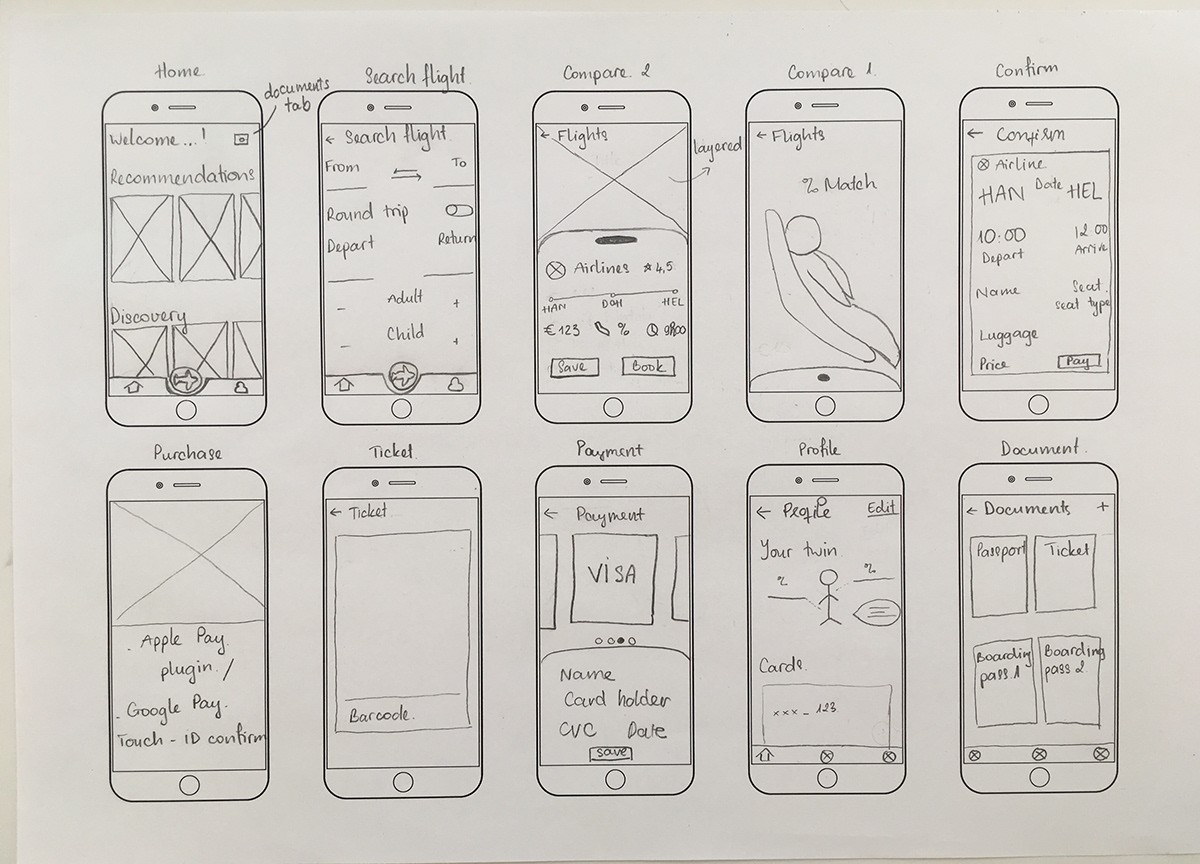 Home
documents
tab
Welcome...!
Recommendations
Discovery
Search flight
← Search flight
From To
Round trip
Depart Return
- Adult +
- Child +
Compare 2
← Flights
layered
Airlines ★4,5
HAN DOH HEL
€123 %
Save Book
Compare 1
← Flights
% Match
Confirm
← Confirm
Airline
HAN Date HEL
10:00 12:00
Depart Arrive
Name Seat.
seat type
Luggage
Price Pay
Purchase
. Apple Pay.
plugin. /
. Google Pay.
Touch - ID confirm
Ticket
← Ticket
Barcode.
Payment
← Payment
VISA
Name
Card holder
CVC Date
save
Profile
← Profile Edit
Your twin
% %
Cards.
xxx - 123
Document
← Documents +
Passport Ticket
Boarding Boarding
pass 1 pass 2